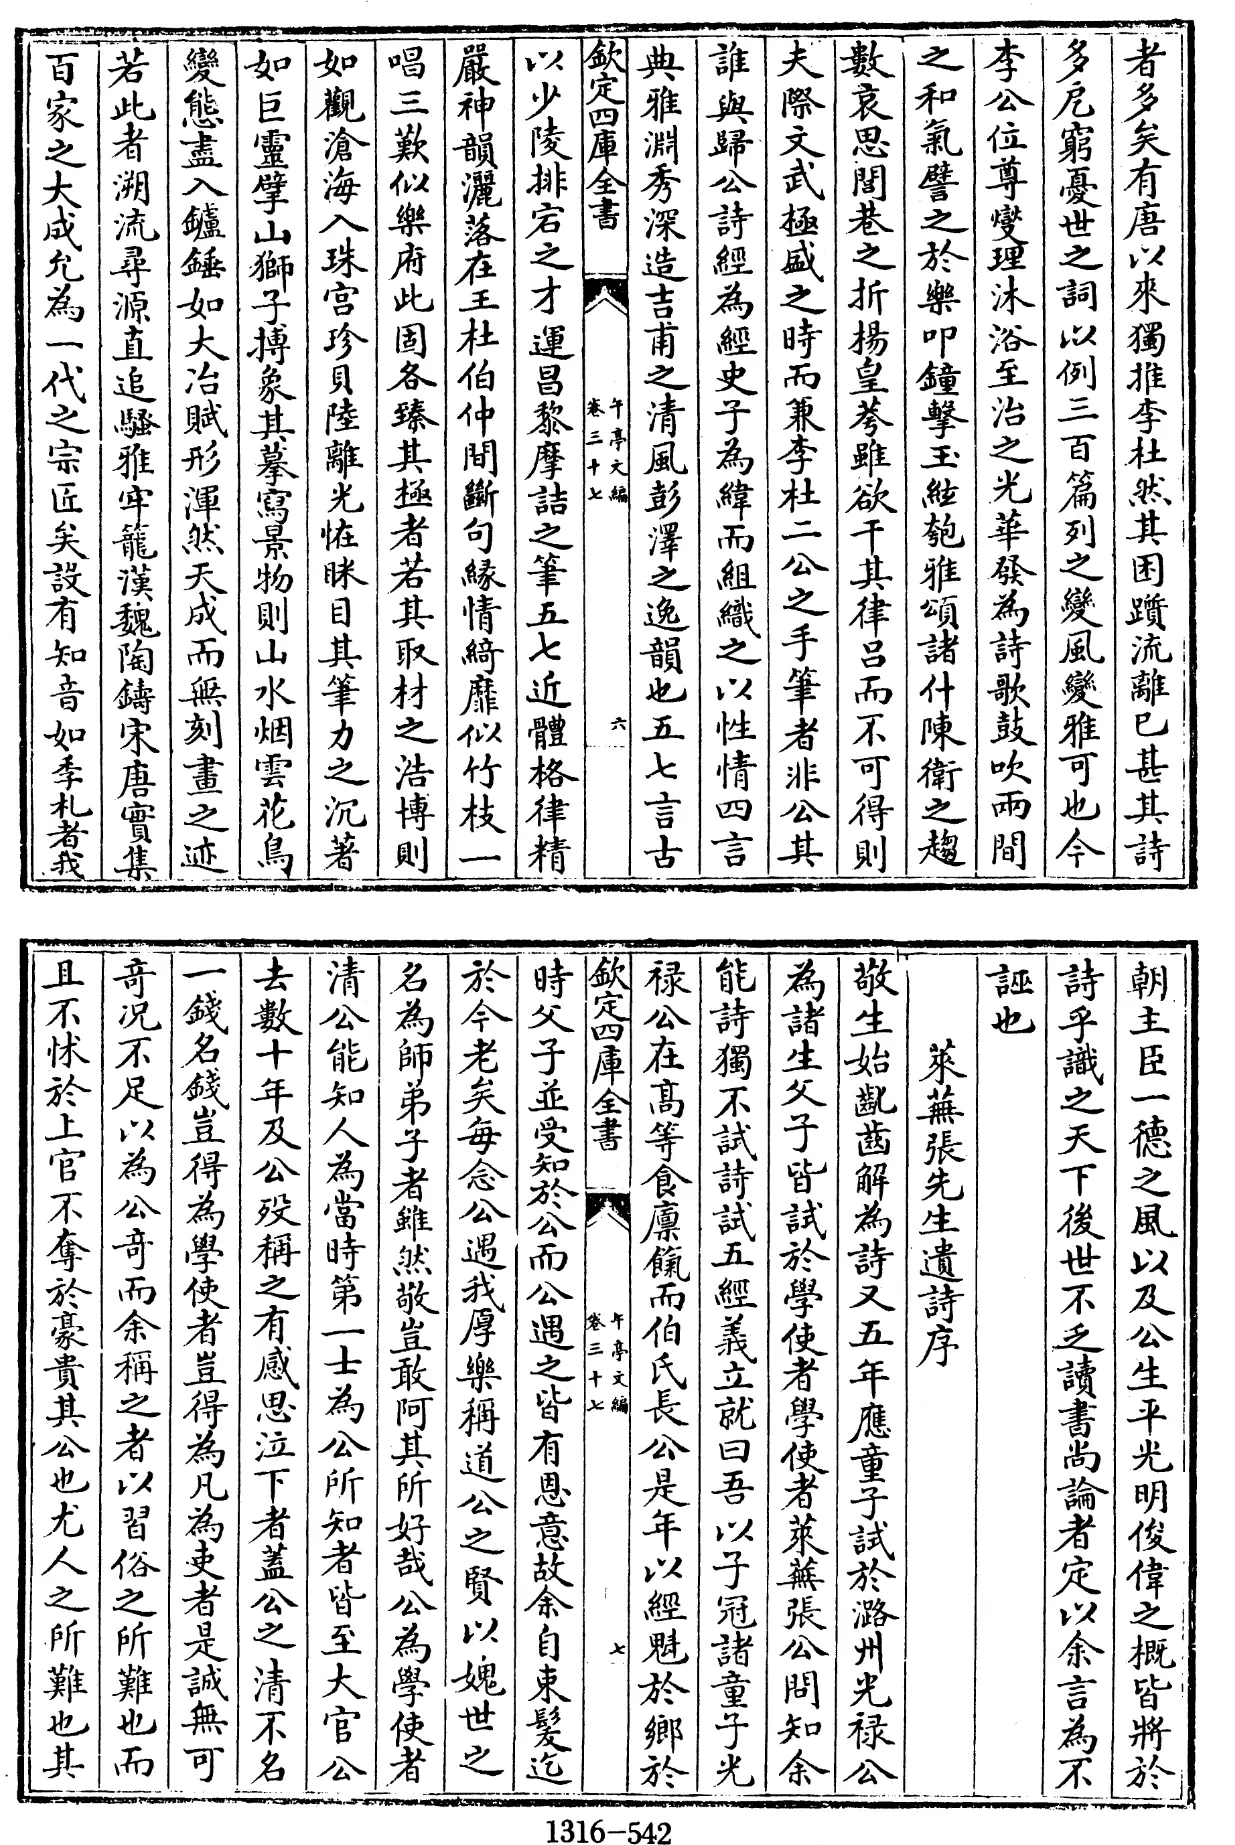 者多矣有唐以來獨推李杜然其困躓流離已甚其詩
多戹窮憂世之詞以例三百篇列之變風變雅可也今
李公位尊燮理沐浴至治之光華發為詩歌鼓吹兩間
之和氣譬之於樂叩鐘擊玉絃匏雅頌諸什陳衛之趨
數哀思閭巷之折楊皇荂雖欲干其律呂而不可得則
夫際文武極盛之時而兼李杜二公之手筆者非公其
誰與歸公詩經為經史子為緯而組織之以性情四言
典雅淵秀深造吉甫之清風彭澤之逸韻也五七言古
欽定四庫全書
午亭文編
卷三十七
六
以少陵排宕之才運昌黎摩詰之筆五七近體格律精
嚴神韻灑落在王杜伯仲間斷句緣情綺靡似竹枝一
唱三歎似樂府此固各臻其極者若其取材之浩博則
如觀滄海入珠宮珍貝陸離光怪眯目其筆力之沉著
如巨靈擘山獅子搏象其摹寫景物則山水烟雲花鳥
變態盡入鑪錘如大冶賦形渾然天成而無刻畫之迹
若此者溯流尋源直追騷雅牢籠漢魏陶鑄宋唐實集
百家之大成允為一代之宗匠矣設有知音如季札者我
朝主臣一德之風以及公生平光明俊偉之概皆將於
詩乎識之天下後世不乏讀書尚論者定以余言為不
誣也
萊蕪張先生遺詩序
敬生始齔齒解為詩又五年應童子試於潞州光禄公
為諸生父子皆試於學使者學使者萊蕪張公問知余
能詩獨不試詩試五經義立就曰吾以子冠諸童子光
禄公在高等食廩餼而伯氏長公是年以經魁於鄉於
欽定四庫全書
午亭文編
卷三十七
七
時父子並受知於公而公遇之皆有恩意故余自束髮迄
於今老矣每念公遇我厚樂稱道公之賢以媿世之
名為師弟子者雖然敬豈敢阿其所好哉公為學使者
清公能知人為當時第一士為公所知者皆至大官公
去數十年及公歿稱之有感思泣下者蓋公之清不名
一錢名錢豈得為學使者豈得為凡為吏者是誠無可
奇况不足以為公奇而余稱之者以習俗之所難也而
且不怵於上官不奪於豪貴其公也尤人之所難也其
1316-542